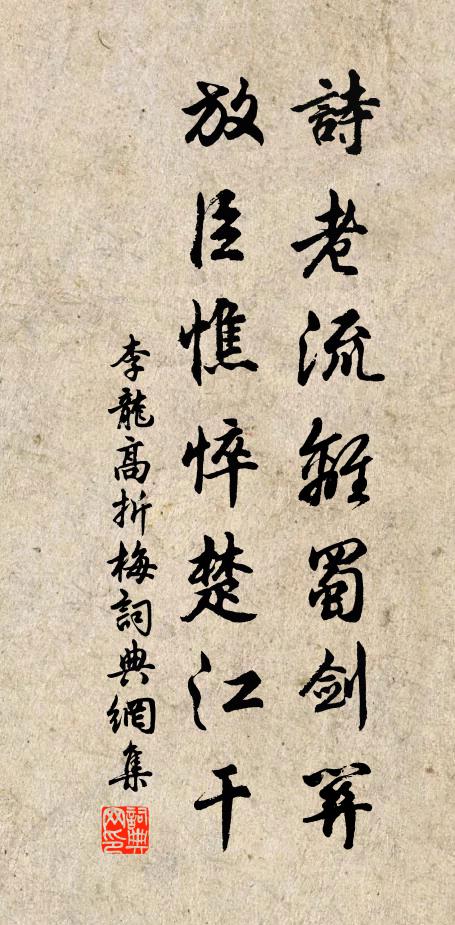 詩老流離蜀劍關
放臣憔悴楚江干
李龍高折梅詞典網集
詞典网印